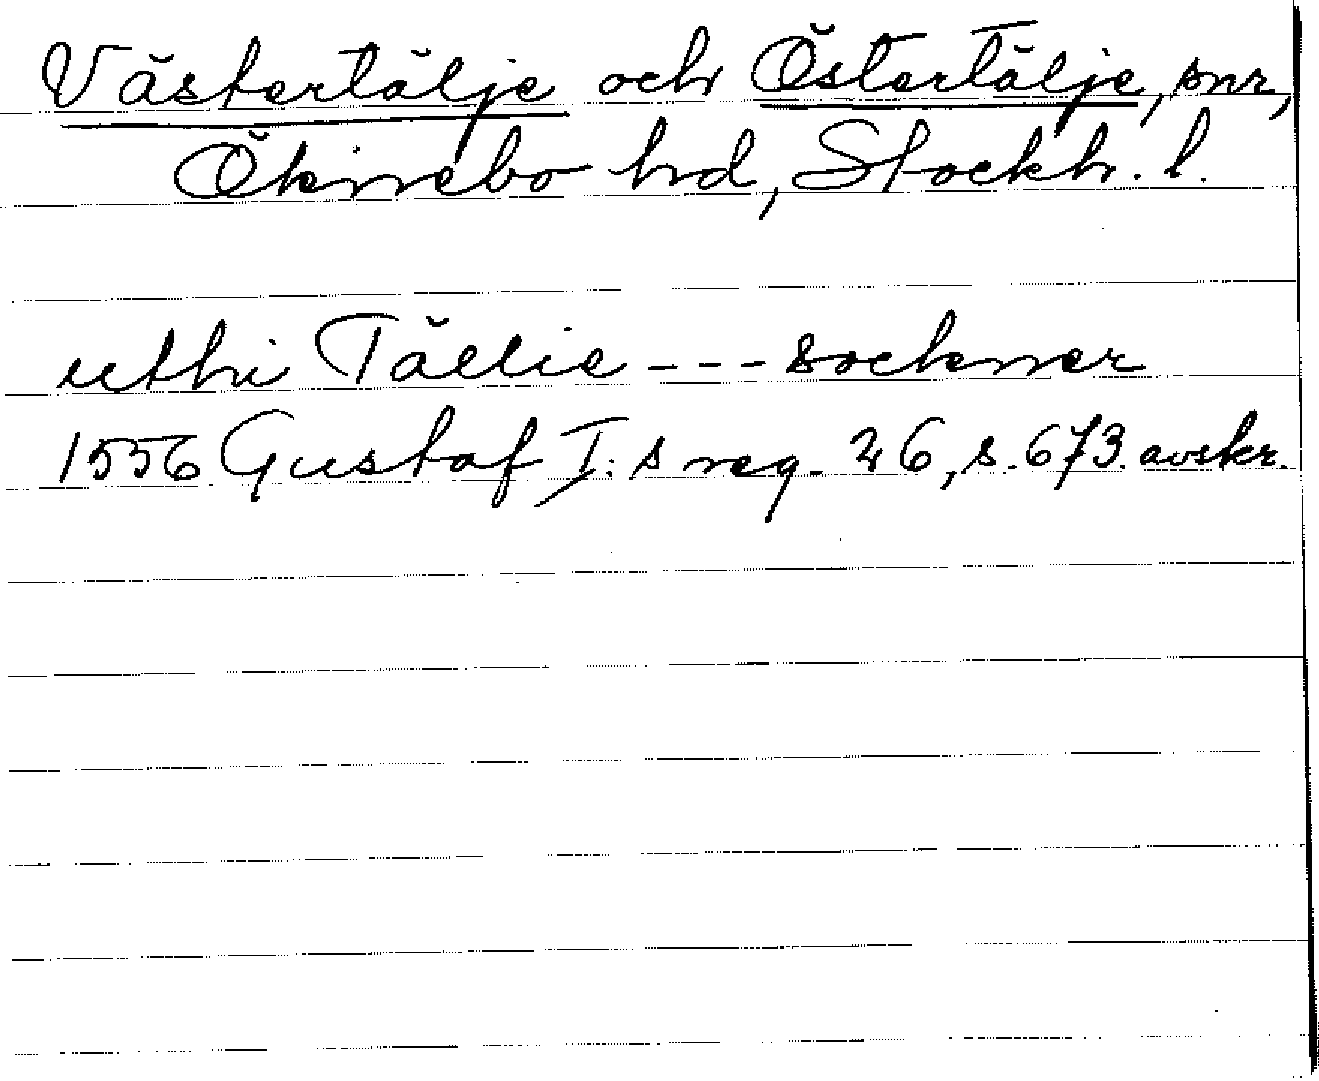 Västertälje och Östertälje, snr,
Öknebo hd, Stockh. l.
uthi Tällie --- sockner
1556 Gustaf I:s reg. 26, s. 673 avskr.